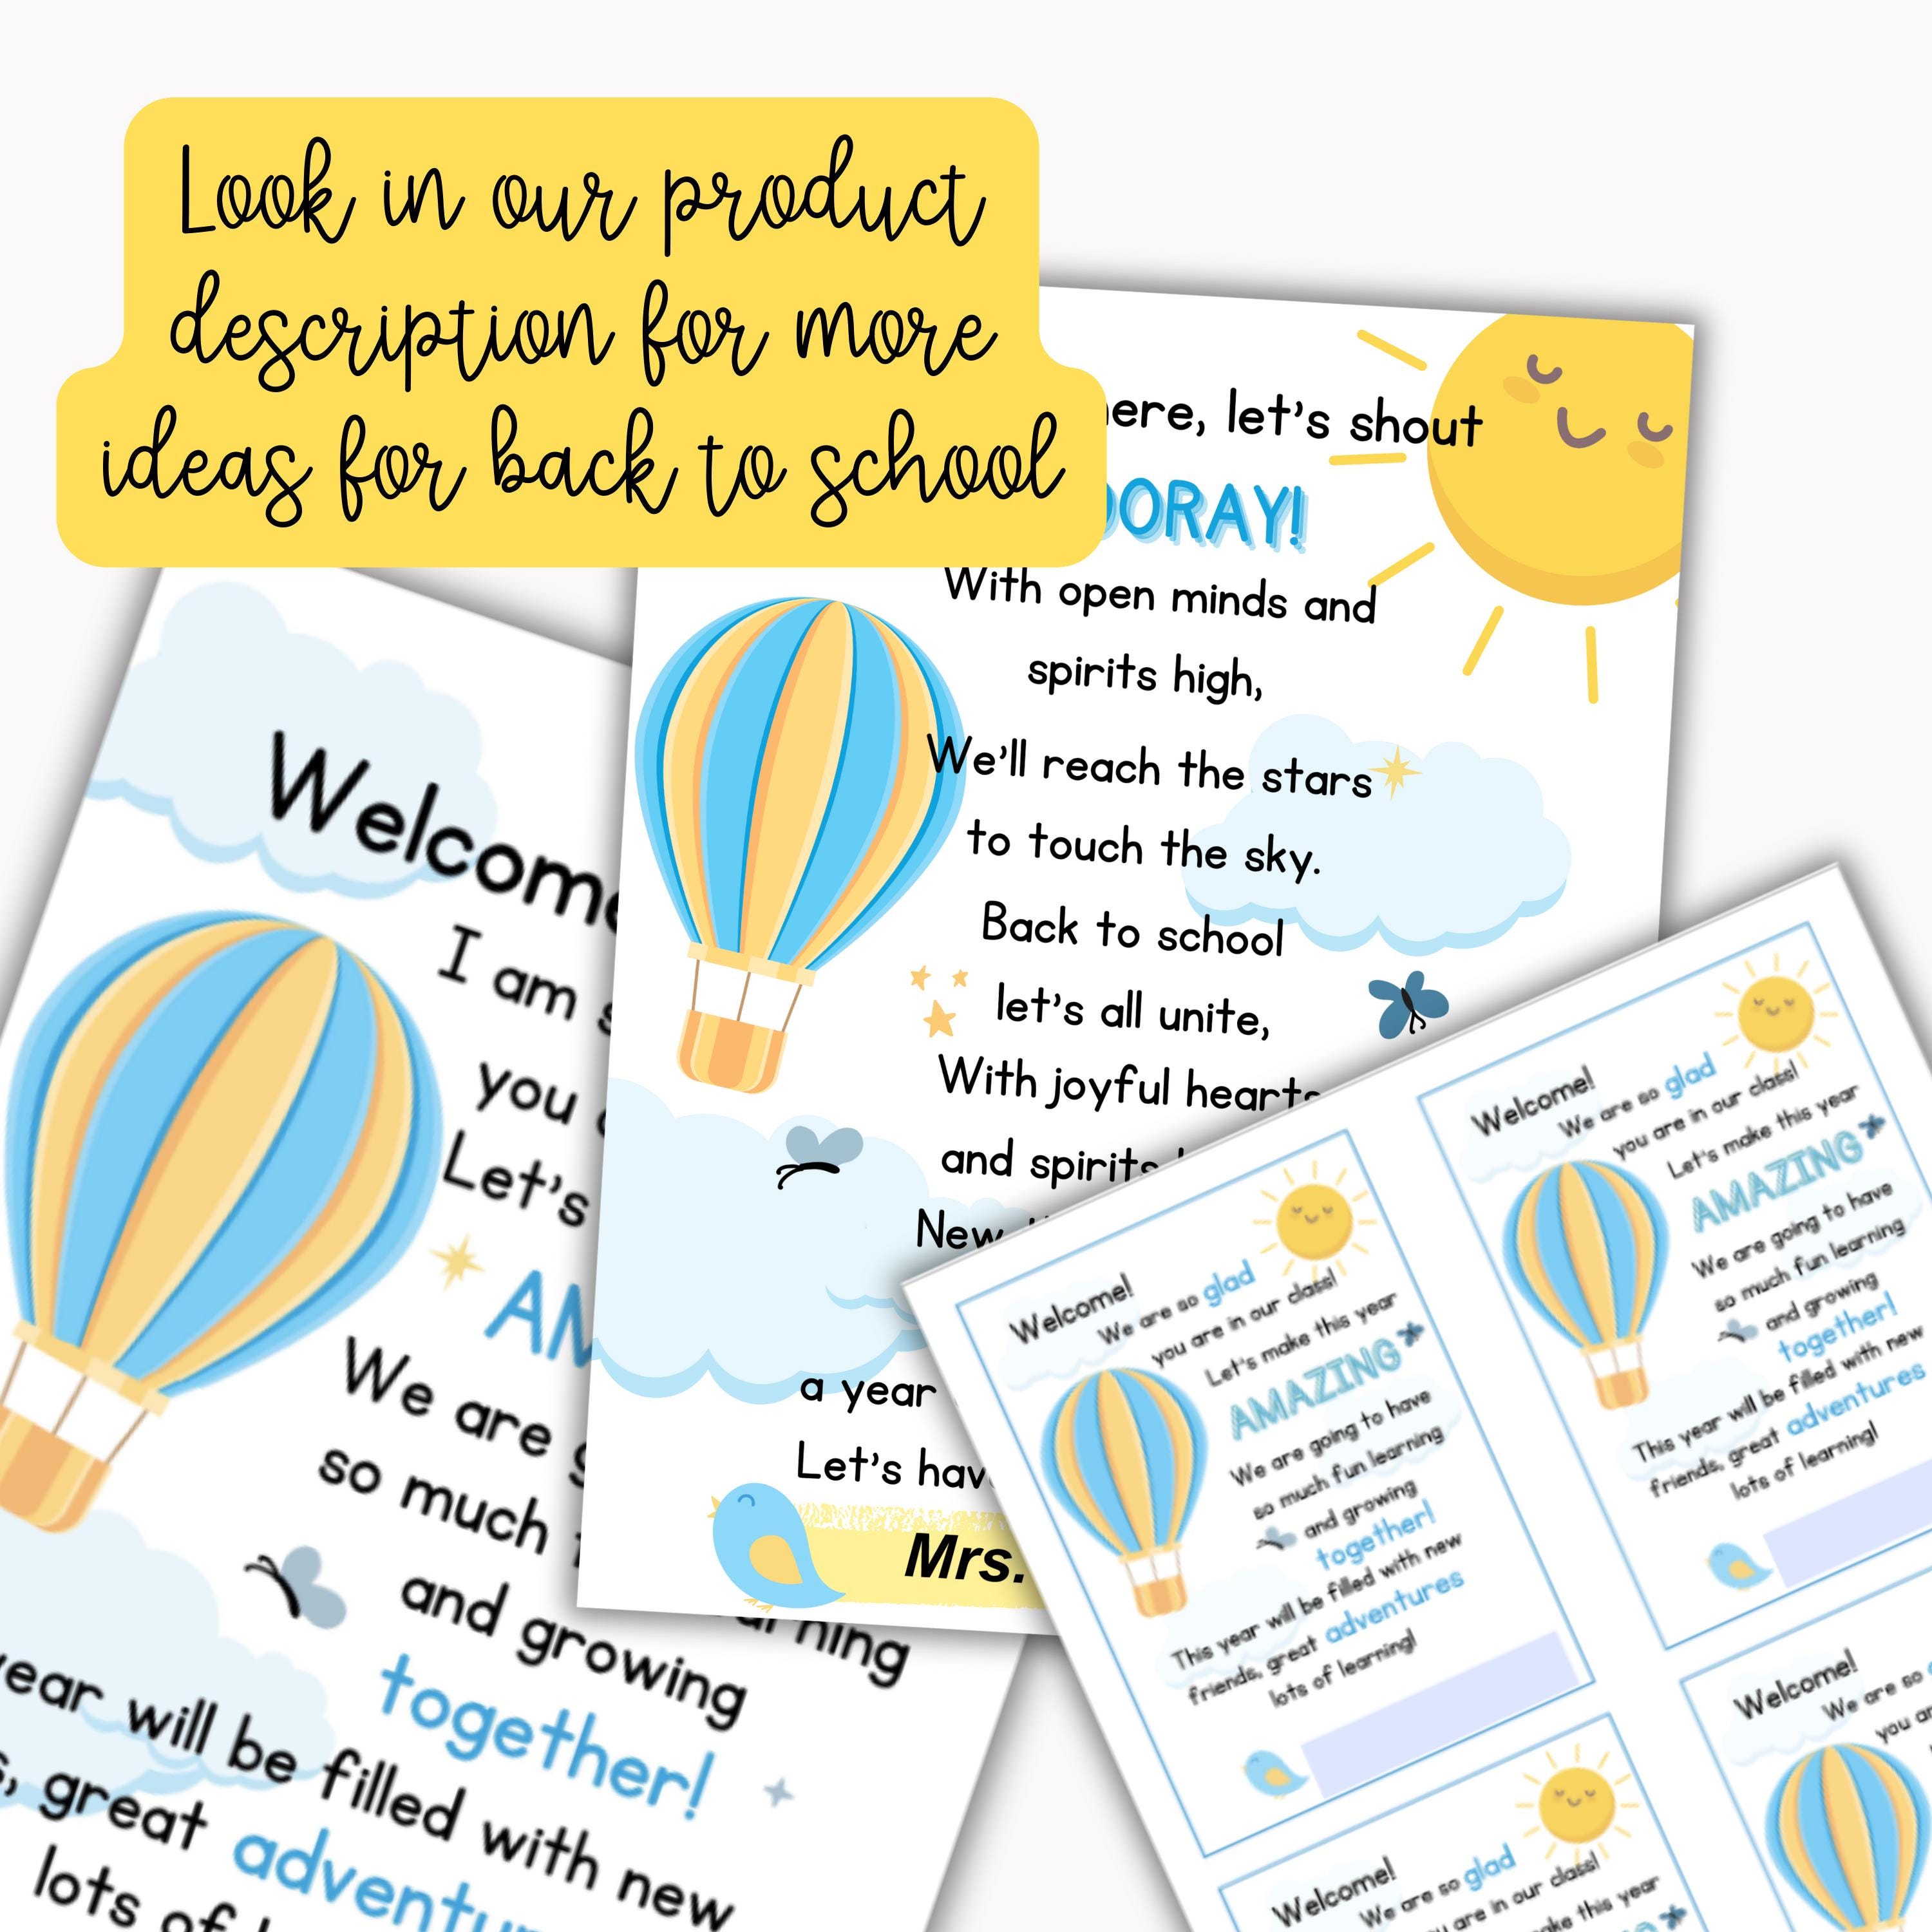 Look in our product
description for more
ideas for back to school
let's shout
With open minds and
spirits high,
We'll reach the stars
to touch the sky.
Back to school
let's all unite,
With joyful hearts
and spirits
New
a year
Let's
Mrs.
Welcome
I am
you
Let's
We are
so much
and growing
together!
year will be filled with new
great
lots of
Welcome!
We are so glad
you are in our class!
Let's make this year
AMAZING
We are going to have
so much fun learning
and growing
together!
This year will be filled with new
friends, great adventures
lots of learning!
Welcome!
We are so glad
you are in our class!
Let's make this year
AMAZING
We are going to have
so much fun learning
and growing
together!
This year will be filled with new
friends, great adventures
lots of learning!
Welcome!
We are so glad
you are in our class!
this year
Welcome!
We are so
you